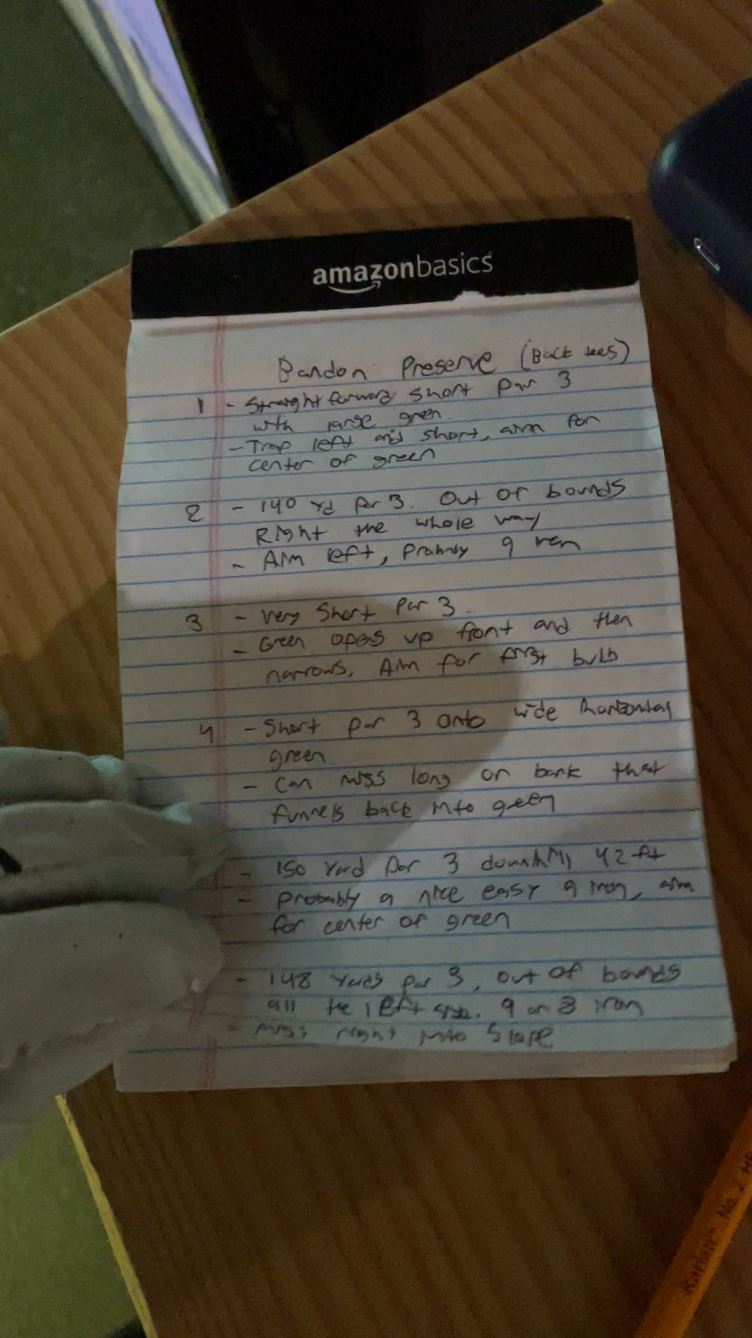 amazonbasics
Bandon Preserve (Back tees)
1 - Straight forward short par 3
with large green
- Trap left and short, aim for
center of green
2 - 140 yd par 3. Out of bounds
Right the whole way
- Aim left, probably 9 iron
3 - Very short par 3
- Green opens up front and then
narrows. Aim for first bulb
4 - Short par 3 onto wide horizontal
green
- Can miss long on bank that
funnels back into green
- 150 yard par 3 downhill 42 ft
- probably a nice easy 9 iron, aim
for center of green
- 148 yards par 3, out of bounds
all the left side. 9 or 8 iron
- miss right into slope
No. 2